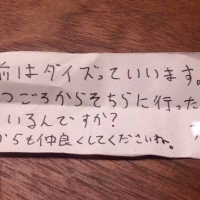 前はダイズっていいます。
つごろからそちらに行った
いるんですか?
からも仲良くしてくださいね。